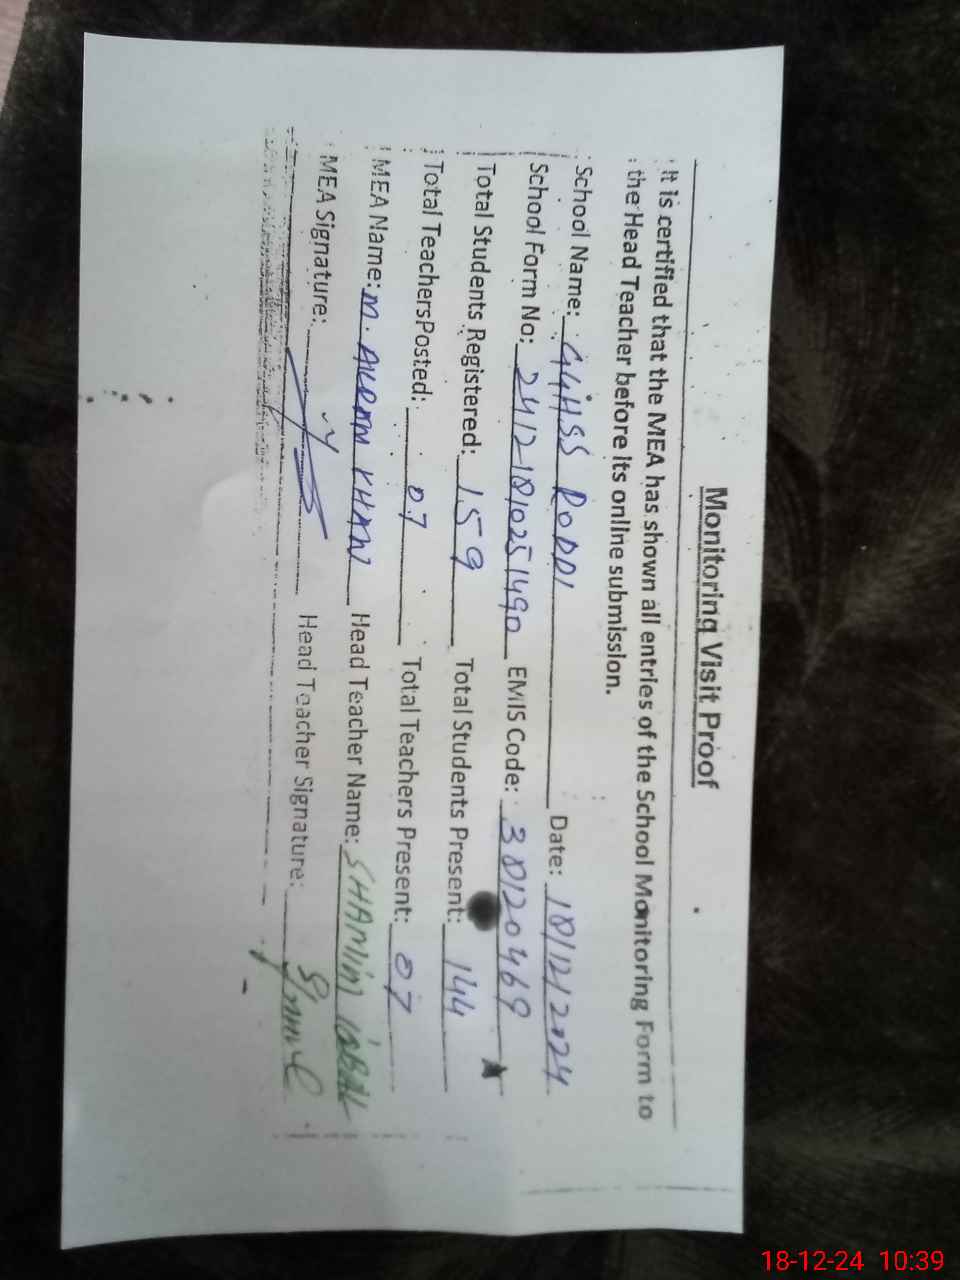 Monitoring Visit Proof
It is certified that the MEA has shown all entries of the School Monitoring Form to
the Head Teacher before its online submission.
School Name: GGHSS RODDI Date: 18/12/2024
School Form No: 24121810251490 EMIS Code: 38120469
Total Students Registered: 159 Total Students Present: 144
Total TeachersPosted: 07 Total Teachers Present: 07
MEA Name: M. AKRAM KHAN Head Teacher Name: SHAMIM IQBAL
MEA Signature: Head Teacher Signature:
18-12-24 10:39